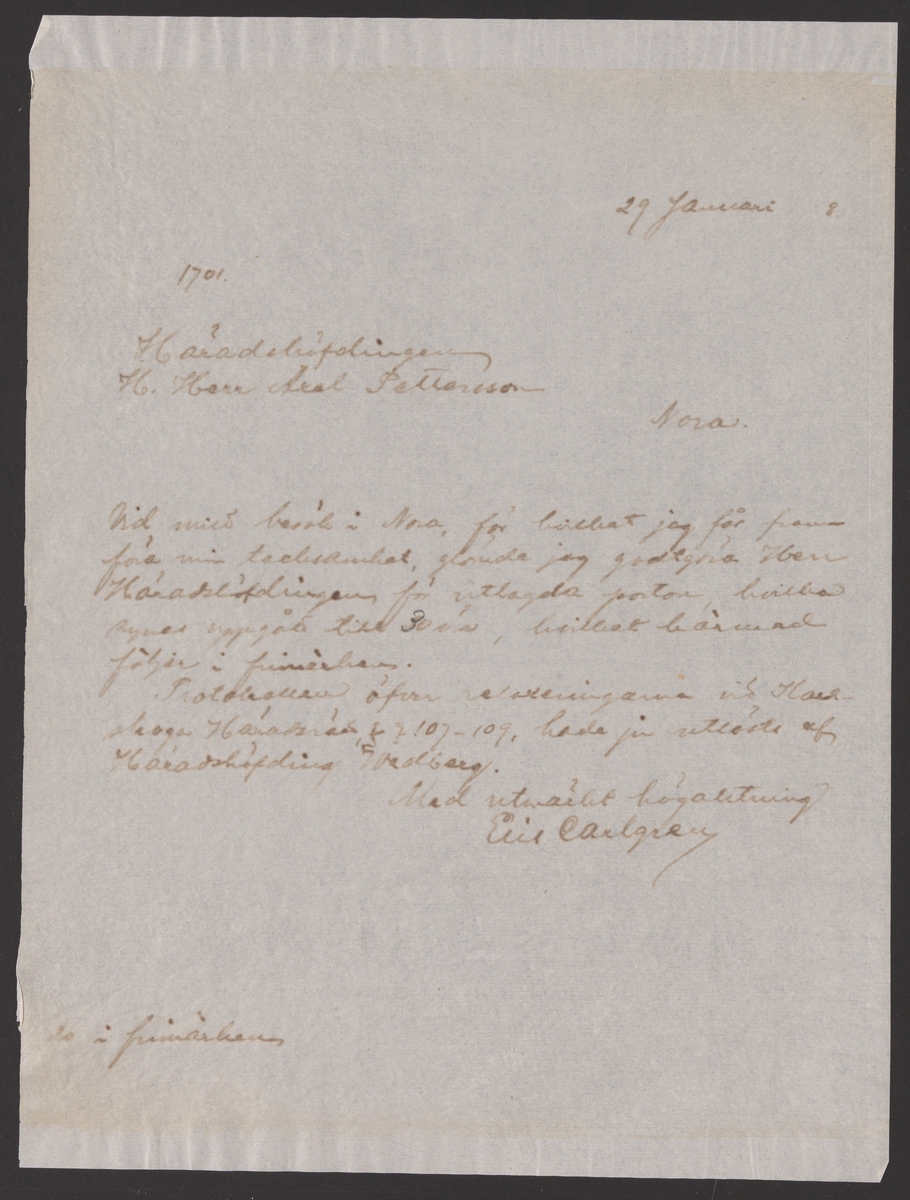 29 Januari 8.
1701.
Häradshöfdingen
H. Herr Axel Pettersson
Nora.
Vid mitt besök i Nora, för hvilket jag får fram-
föra min tacksamhet, glömde jag godtgöra Herr
Häradshöfdingen för utlagda porton, hvilka
synes uppgå till 30 öre, hvilket härmed
följer i frimärken.
Protokollen öfver relaxeringarna vid Karl-
skoga Häradsrätt, §§ 107-109, hade ju utlösts af
Häradshöfding Wedberg.
Med utmärkt högaktning
Eric Carlgren
i frimärken